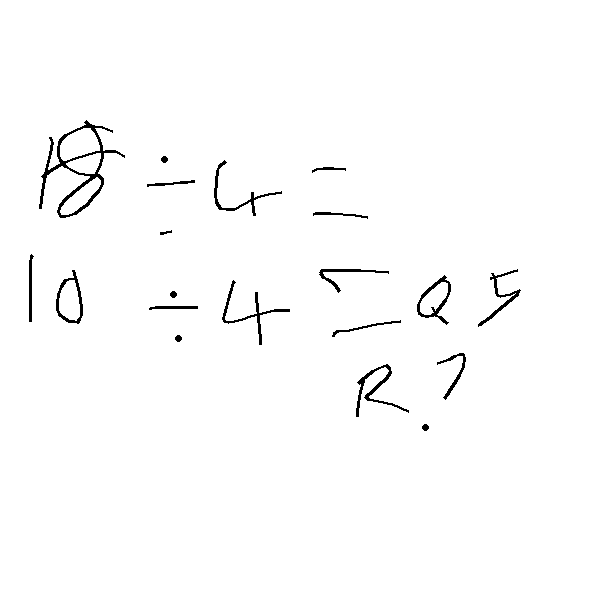 18 ÷ 4 =
10 ÷ 4 = Q 5
R ?